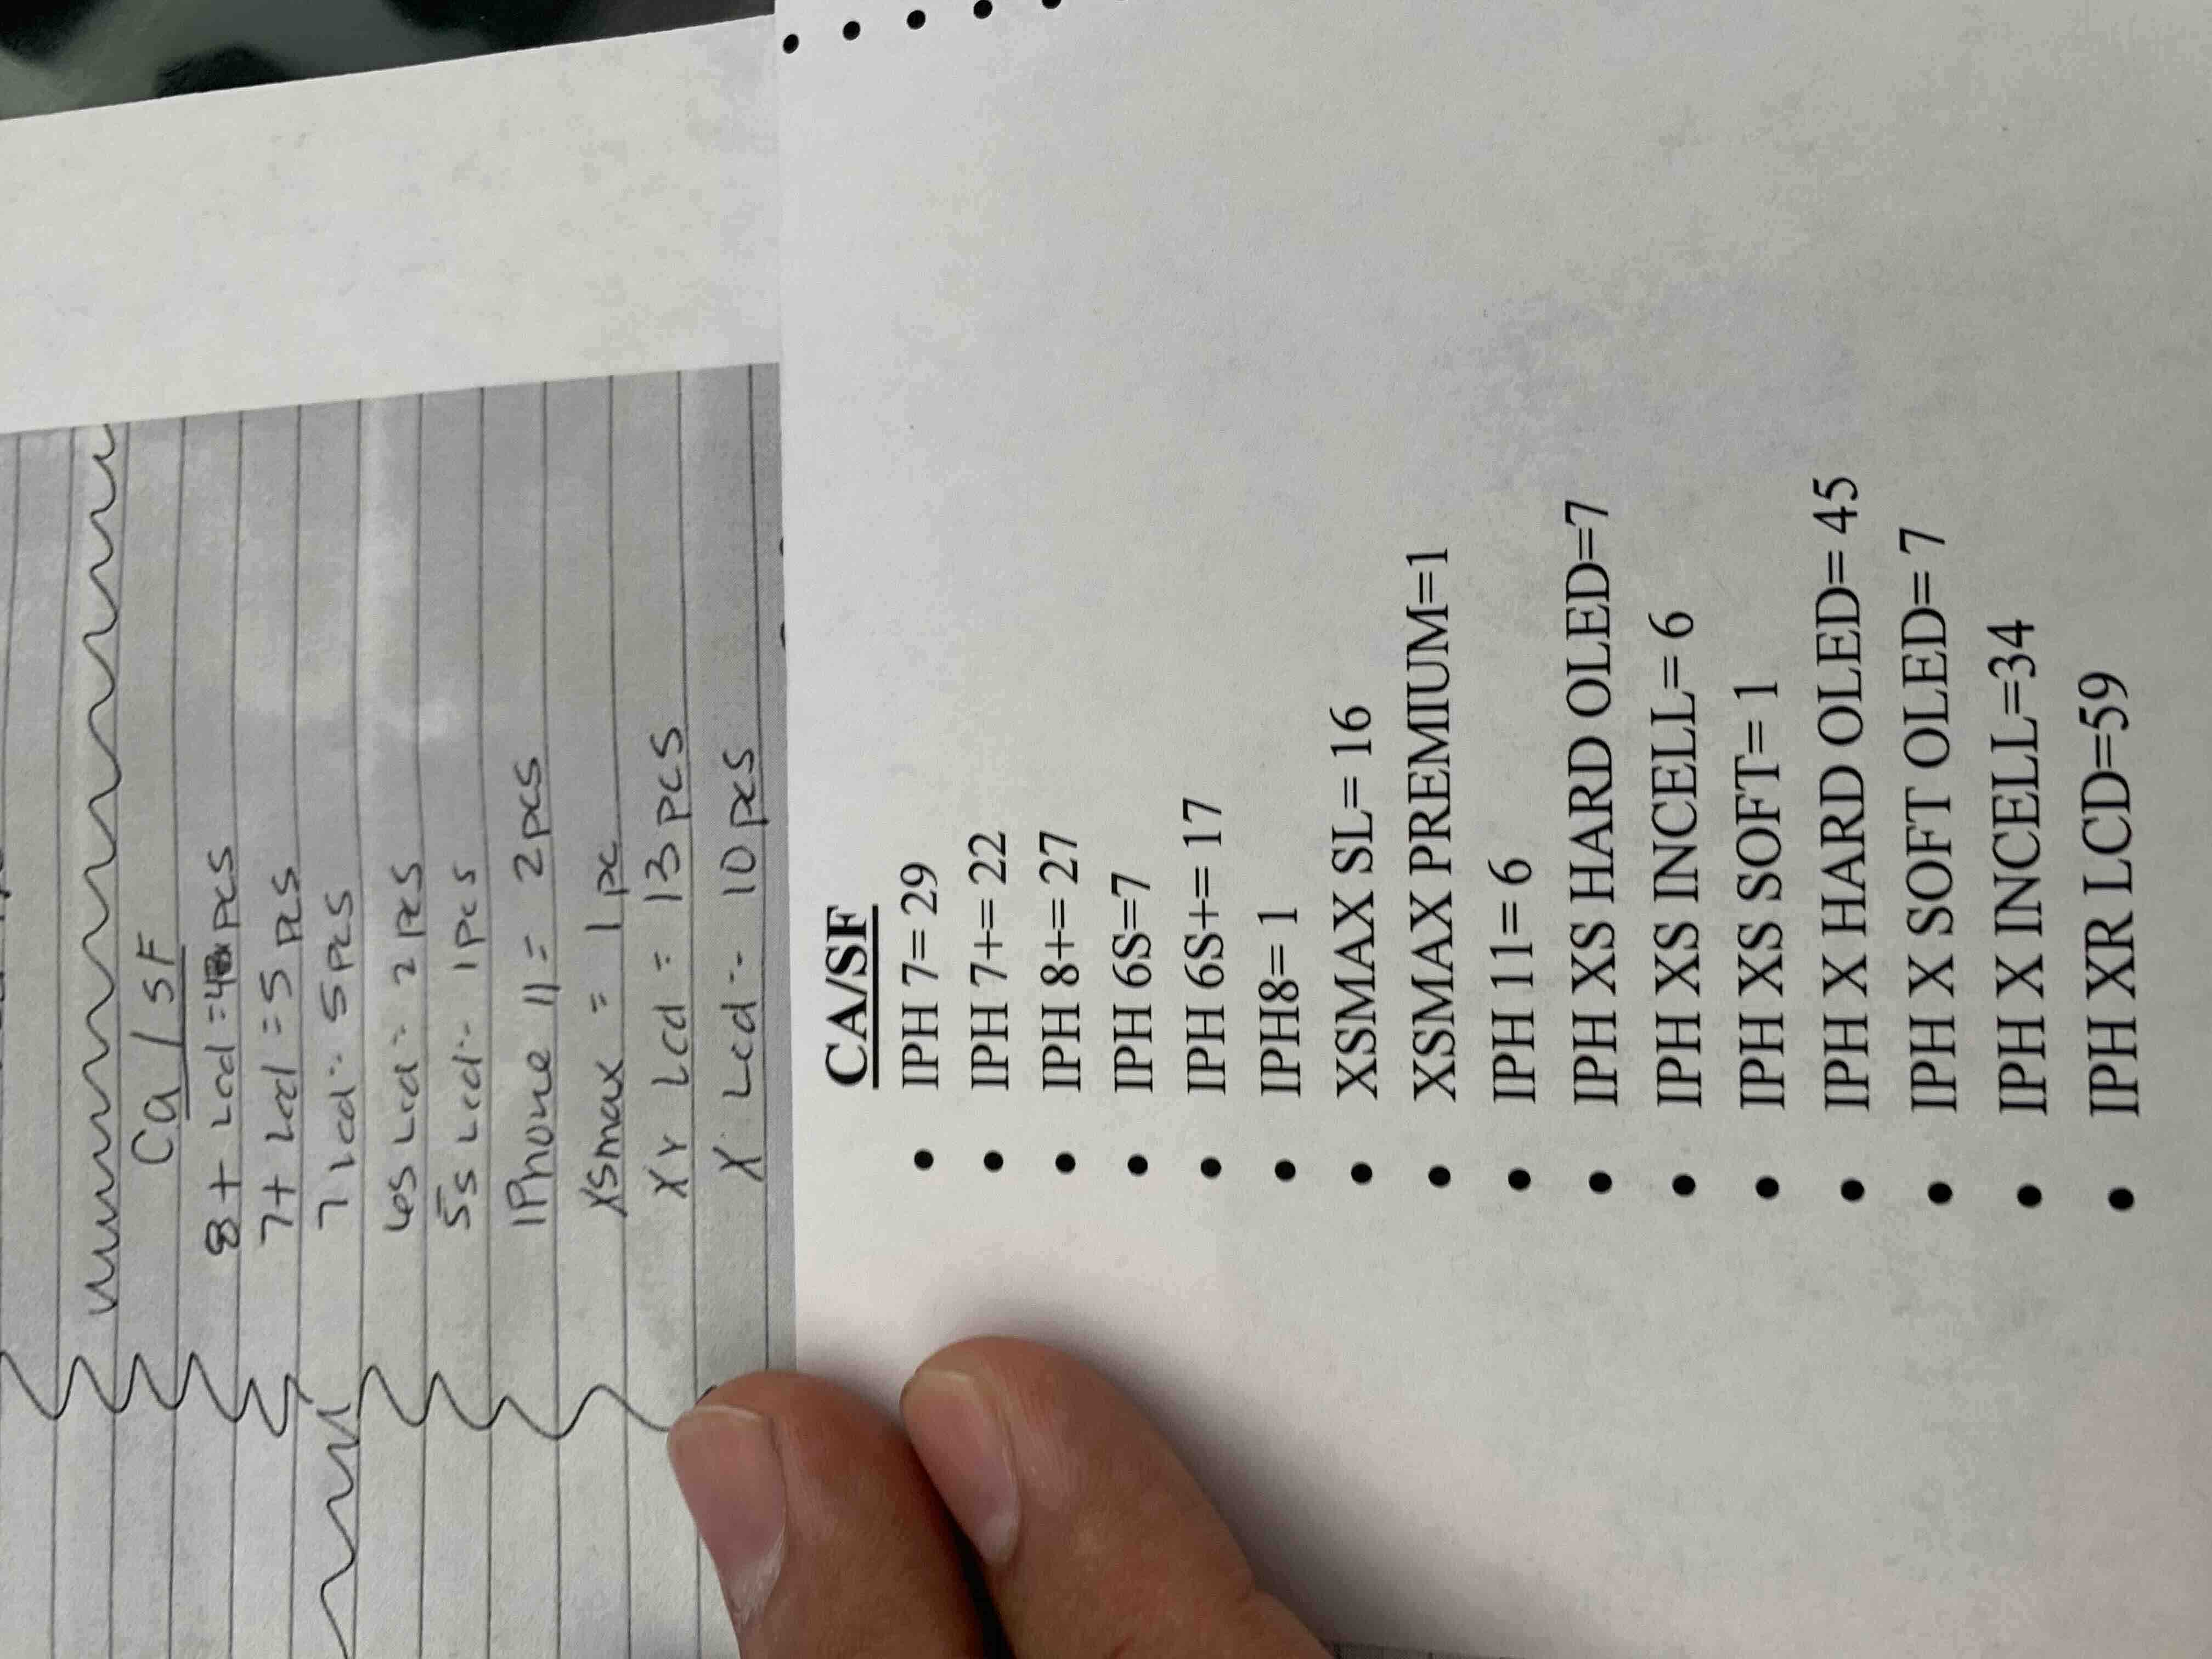 Ca / SF
8+ Lcd = pcs
7+ Lcd = 5 pcs
7 Lcd = 5 pcs
6s Lcd = 2 pcs
5s Lcd = 1 pcs
IPhone 11 = 2 pcs
XSmax = 1 pc
Xr Lcd = 13 pcs
X Lcd = 10 pcs
CA/SF
• IPH 7= 29
• IPH 7+= 22
• IPH 8+= 27
• IPH 6S=7
• IPH 6S+= 17
• IPH8= 1
• XSMAX SL= 16
• XSMAX PREMIUM=1
• IPH 11= 6
• IPH XS HARD OLED=7
• IPH XS INCELL= 6
• IPH XS SOFT= 1
• IPH X HARD OLED= 45
• IPH X SOFT OLED= 7
• IPH X INCELL=34
• IPH XR LCD=59